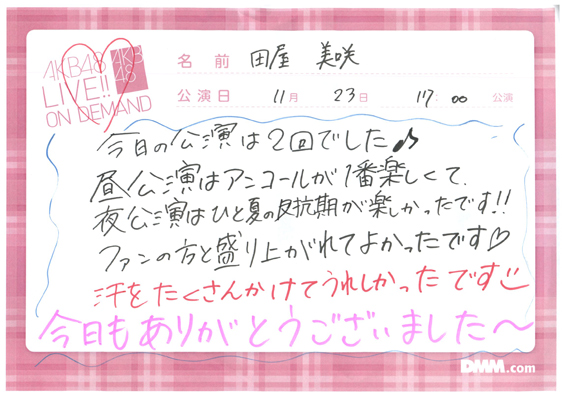 AKB48
LIVE!!
ON DEMAND
AKB
48
名前 田屋 美咲
公演日 11月 23日 17:00 公演
今日の公演は2回でした♪
昼公演はアンコールが1番楽しくて、
夜公演はひと夏の反抗期が楽しかったです!!
ファンの方と盛り上がれてよかったです♡
汗をたくさんかけてうれしかったです
今日もありがとうございました〜
DMM.com